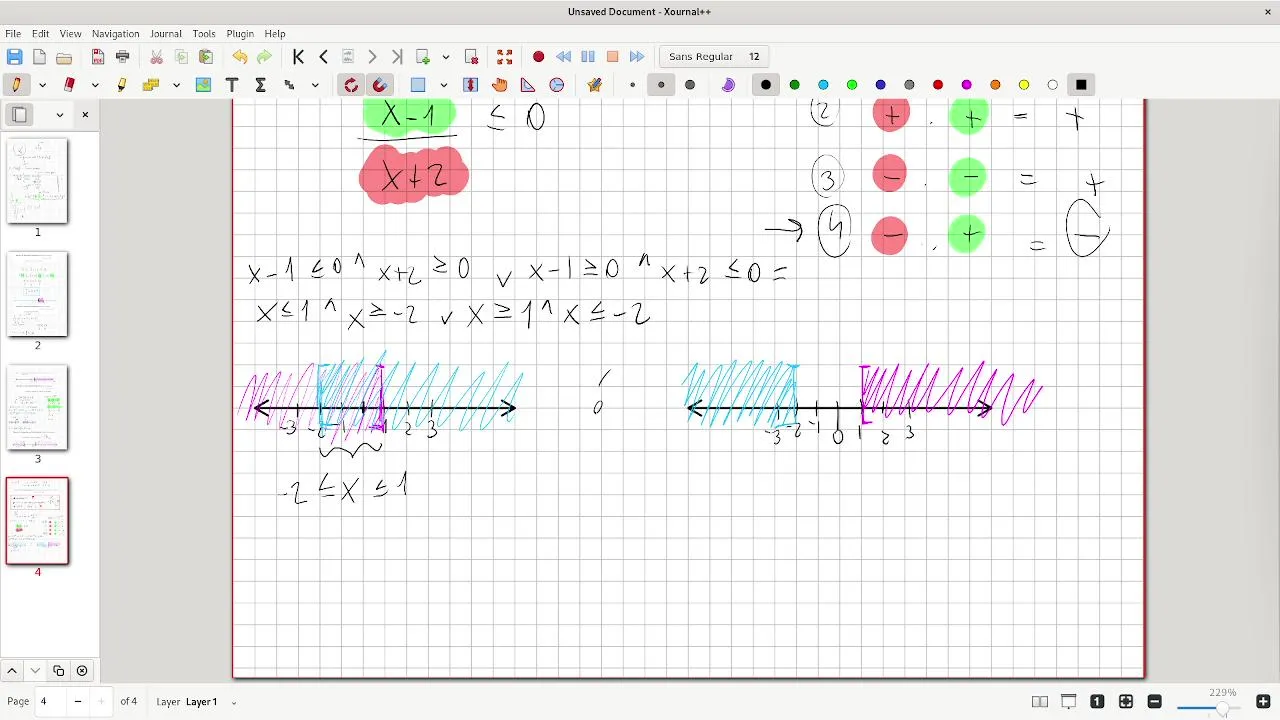 Unsaved Document - Xournal++
File Edit View Navigation Journal Tools Plugin Help
Sans Regular 12
x-1 ≤ 0
x+2
2 + . + = +
3 - . - = +
→ 4 - . + = -
x-1 ≤0 ^ x+2 ≥0 v x-1 ≥0 ^ x+2 ≤0 =
x≤1 ^ x≥-2 v x≥1 ^ x≤-2
-3 -2 -1 1 2 3
-3 -2 -1 0 1 2 3
-2 ≤ x ≤ 1
1
2
3
4
Page 4 of 4 Layer Layer 1
229%